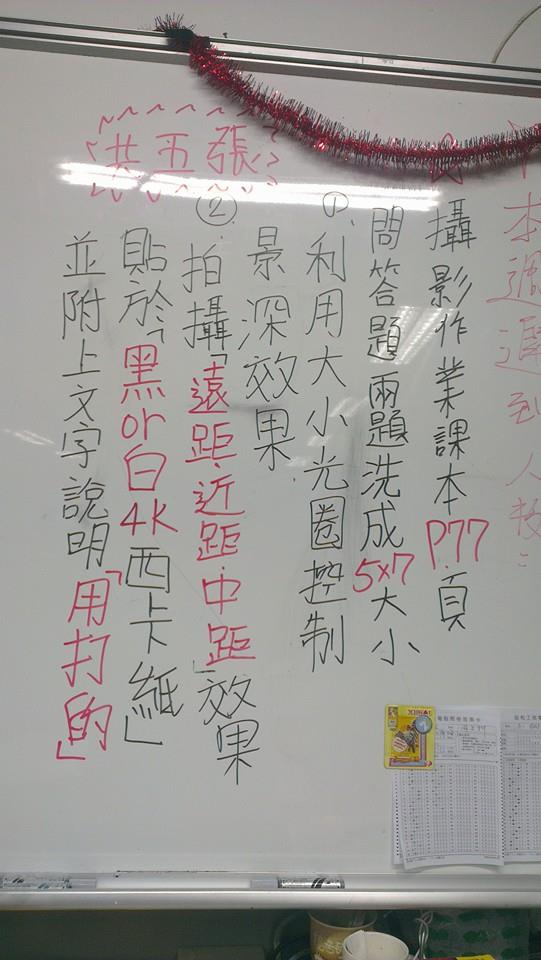 本週遲到人數：
攝影作業課本P.77頁
問答題兩題洗成5x7大小
①利用大小光圈控制
景深效果.
②拍攝「遠距.近距.中距」效果
貼於「黑or白4K西卡紙」
並附上文字說明「用打的」
共五張